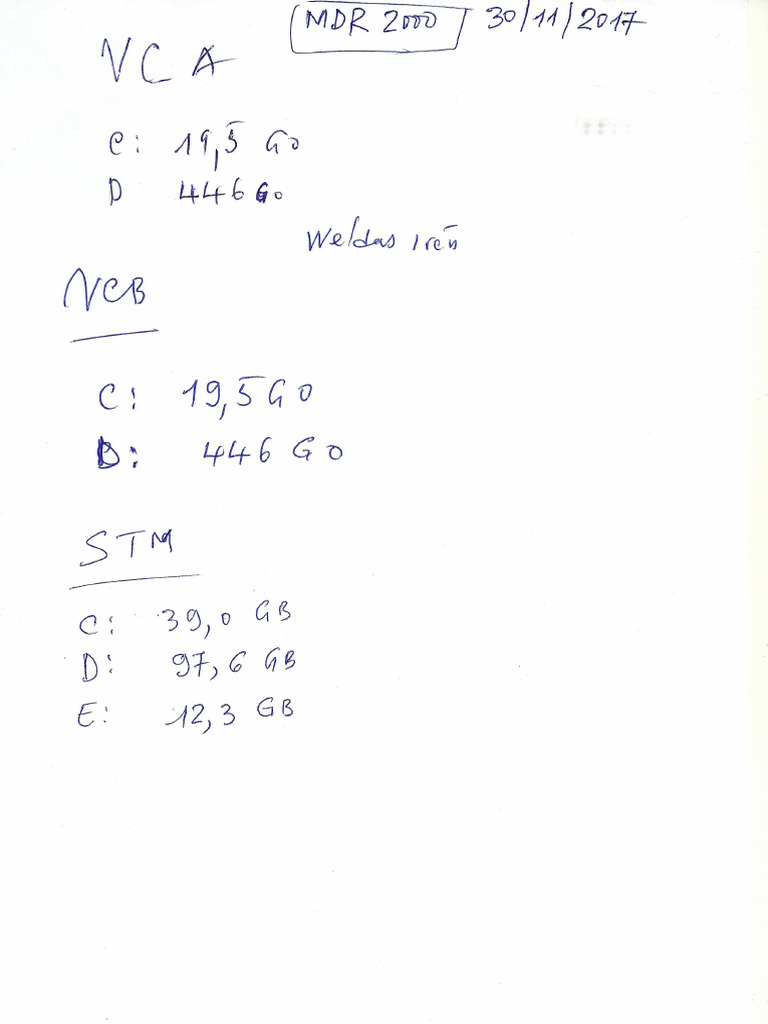 MDR 2000 30/11/2017
VCA
C: 19,5 GO
D 446 GO
NCB
C: 19,5 GO
D: 446 GO
STM
C: 39,0 GB
D: 97,6 GB
E: 12,3 GB